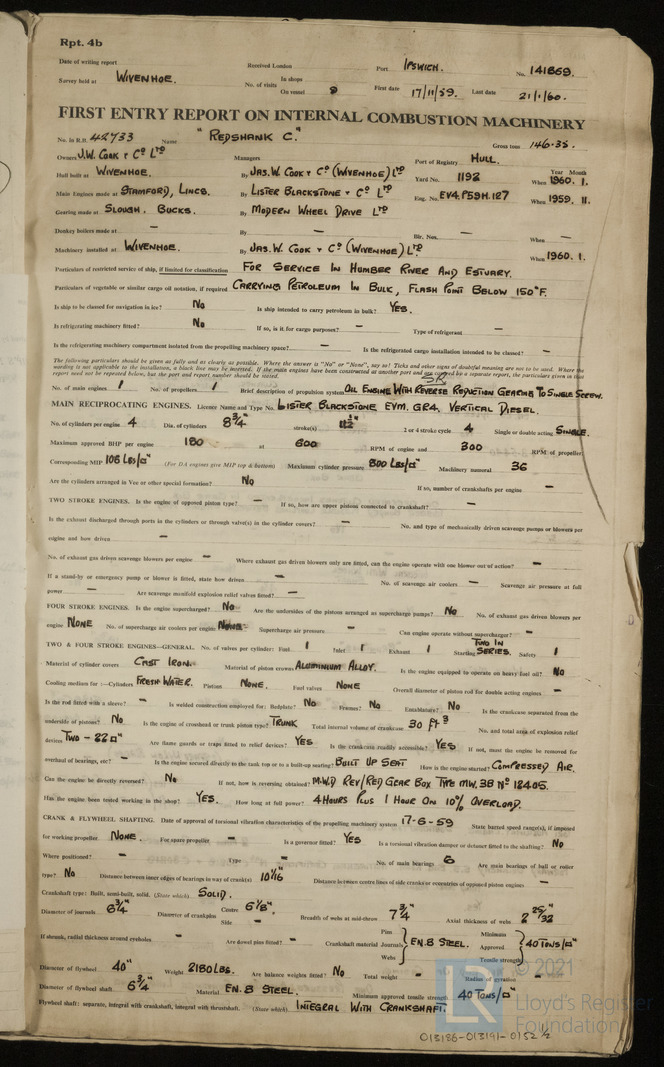 Rpt. 4b
Date of writing report Received London Port IPSWICH. No. 141869.
Survey held at WIVENHOE. No. of visits In shops On vessel 9 First date 17/11/59. Last date 21/1/60.
FIRST ENTRY REPORT ON INTERNAL COMBUSTION MACHINERY
No. in R.B. 42733 Name "REDSHANK C." Gross tons 146.35.
Owners J.W. COOK & CO LTD Managers Port of Registry HULL.
Hull built at WIVENHOE. By JAS. W. COOK & CO (WIVENHOE) LTD Yard No. 1192 Year Month When 1960. 1.
Main Engines made at STAMFORD, LINCS. By LISTER BLACKSTONE & CO LTD Eng. No. EV4.P59H.127 When 1959. 11.
Gearing made at SLOUGH. BUCKS. By MODERN WHEEL DRIVE LTD
Donkey boilers made at — By — Blr. Nos. — When —
Machinery installed at WIVENHOE. By JAS. W. COOK & CO (WIVENHOE) LTD When 1960. 1.
Particulars of restricted service of ship, if limited for classification FOR SERVICE IN HUMBER RIVER AND ESTUARY.
Particulars of vegetable or similar cargo oil notation, if required CARRYING PETROLEUM IN BULK, FLASH POINT BELOW 150°F.
Is ship to be classed for navigation in ice? NO Is ship intended to carry petroleum in bulk? YES.
Is refrigerating machinery fitted? NO If so, is it for cargo purposes? — Type of refrigerant —
Is the refrigerating machinery compartment isolated from the propelling machinery space? — Is the refrigerated cargo installation intended to be classed? —
The following particulars should be given as fully and as clearly as possible. Where the answer is "No" or "None", say so! Ticks and other signs of doubtful meaning are not to be used. Where the
wording is not applicable to the installation, a black line may be inserted. If the main engines have been constructed at another port and are covered by a separate report, the particulars given in that
report need not be repeated below, but the port and report number should be stated.
No. of main engines 1 No. of propellers 1 Brief description of propulsion system OIL ENGINE WITH REVERSE REDUCTION GEARING TO SINGLE SCREW.
MAIN RECIPROCATING ENGINES. Licence Name and Type No. LISTER BLACKSTONE EVM. GR4. VERTICAL DIESEL.
No. of cylinders per engine 4 Dia. of cylinders 8 3/4" stroke(s) 2 or 4 stroke cycle 4 Single or double acting SINGLE.
Maximum approved BHP per engine 180 at 600 RPM of engine and 300 RPM of propeller.
Corresponding MIP 106 LBS/□" (For DA engines give MIP top & bottom) Maximum cylinder pressure 800 LBS/□" Machinery numeral 36
Are the cylinders arranged in Vee or other special formation? NO If so, number of crankshafts per engine —
TWO STROKE ENGINES. Is the engine of opposed piston type? — If so, how are upper pistons connected to crankshaft? —
Is the exhaust discharged through ports in the cylinders or through valve(s) in the cylinder covers? — No. and type of mechanically driven scavenge pumps or blowers per
engine and how driven —
No. of exhaust gas driven scavenge blowers per engine — Where exhaust gas driven blowers only are fitted, can the engine operate with one blower out of action? —
If a stand-by or emergency pump or blower is fitted, state how driven — No. of scavenge air coolers — Scavenge air pressure at full
power — Are scavenge manifold explosion relief valves fitted? —
FOUR STROKE ENGINES. Is the engine supercharged? NO Are the undersides of the pistons arranged as supercharge pumps? NO No. of exhaust gas driven blowers per
engine NONE No. of supercharge air coolers per engine NONE. Supercharge air pressure — Can engine operate without supercharger? —
TWO & FOUR STROKE ENGINES—GENERAL. No. of valves per cylinder: Fuel 1 Inlet 1 Exhaust 1 Starting TWO IN SERIES. Safety 1
Material of cylinder covers CAST IRON. Material of piston crowns ALUMINIUM ALLOY. Is the engine equipped to operate on heavy fuel oil? NO
Cooling medium for :—Cylinders FRESH WATER. Pistons NONE. Fuel valves NONE Overall diameter of piston rod for double acting engines —
Is the rod fitted with a sleeve? — Is welded construction employed for: Bedplate? NO Frames? NO Entablature? NO Is the crankcase separated from the
underside of pistons? NO Is the engine of crosshead or trunk piston type? TRUNK Total internal volume of crankcase 30 FT3 No. and total area of explosion relief
devices TWO - 22 □" Are flame guards or traps fitted to relief devices? YES Is the crankcase readily accessible? YES If not, must the engine be removed for
overhaul of bearings, etc? — Is the engine secured directly to the tank top or to a built-up seating? BUILT UP SEAT How is the engine started? COMPRESSED AIR.
Can the engine be directly reversed? NO If not, how is reversing obtained? M.W.D REV/RED GEAR BOX TYPE MW. 3B NO 18405.
Has the engine been tested working in the shop? YES. How long at full power? 4 HOURS PLUS 1 HOUR ON 10% OVERLOAD.
CRANK & FLYWHEEL SHAFTING. Date of approval of torsional vibration characteristics of the propelling machinery system 17-6-59 State barred speed range(s), if imposed
for working propeller NONE. For spare propeller — Is a governor fitted? YES Is a torsional vibration damper or detuner fitted to the shafting? NO
Where positioned? — Type — No. of main bearings 6 Are main bearings of ball or roller
type? NO Distance between inner edges of bearings in way of crank(s) 10 1/16" Distance between centre lines of side cranks or eccentrics of opposed piston engines —
Crankshaft type: Built, semi-built, solid. (State which) SOLID.
Diameter of journals 6 3/4" Diameter of crankpins Centre 6 1/8" Side — Breadth of webs at mid-throw 7 3/4" Axial thickness of webs 2 25/32"
If shrunk, radial thickness around eyeholes — Are dowel pins fitted? — Crankshaft material Pins Journals Webs EN.8 STEEL. Minimum Approved Tensile strength 40 TONS/□"
Diameter of flywheel 40" Weight 2180 LBS. Are balance weights fitted? NO Total weight — Radius of gyration
Diameter of flywheel shaft 6 3/4" Material EN. 8 STEEL. Minimum approved tensile strength 40 TONS/□"
Flywheel shaft: separate, integral with crankshaft, integral with thrustshaft. (State which) INTEGRAL WITH CRANKSHAFT.
LR © 2021
Lloyd's Register
Foundation
013186-013191-0152 ½